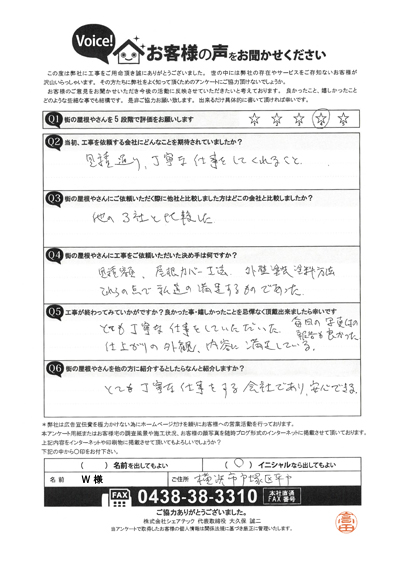 Voice!
お客様の声をお聞かせください
この度は弊社に工事をご用命頂き誠にありがとうございました。世の中には弊社の存在やサービスをご存知ないお客様が
沢山いらっしゃいます。その方たちに弊社をよく知って頂くためのアンケートにご協力頂けないでしょうか。
お客様のご意見をお聞かせいただき今後の活動に反映させていただきたいと考えております。良かったこと、嬉しかったこと
どのような些細な事でも結構です。是非ご協力お願い致します。出来るだけ具体的に書いて頂ければ幸いです。
Q1 街の屋根やさんを5段階で評価をお願いします
☆ ☆ ☆ ☆ ☆
1 2 3 4 5
Q2 当初、工事を依頼する会社にどんなことを期待されていましたか?
見積通り、丁寧な仕事をしてくれること。
Q3 街の屋根やさんにご依頼いただく際に他社と比較しました方はどこの会社と比較しましたか?
他の3社と比較した
Q4 街の屋根やさんに工事をご依頼いただいた決め手は何ですか?
見積額、屋根カバー工法、外壁塗装塗料方法
これらの点で私達の満足するものであった
Q5 工事が終わってみていかがですか?良かった事・嬉しかったことを忌憚なく頂戴出来ましたら幸いです
とても丁寧な仕事をしていただいた。毎回の写真での
報告も良かった
仕上がりの外観、内容に満足している。
Q6 街の屋根やさんを他の方に紹介するとしたらなんと紹介しますか?
とても丁寧な仕事をする会社であり、安心できる。
*弊社は広告宣伝費を極力かけない為にホームページだけを頼りにお客様への営業活動を行っております。
本アンケート用紙またはお客様宅の調査風景や施工状況、お客様の顔写真を随時ブログ形式のインターネットに掲載させて頂いております。
上記内容をインターネットや印刷物に掲載させて頂いてもよろしいでしょうか?
下記の中から〇印をお付下さい。
( )名前を出してもよい (〇)イニシャルなら出してもよい
名前 W様 ご住所 横浜市戸塚区平戸
FAX 0438-38-3310 本社直通 FAX番号
ご協力ありがとうございました。
株式会社シェアテック 代表取締役 大久保 誠二
当アンケートで取得したお客様の個人情報は関係法規に基づき厳正に管理いたします。